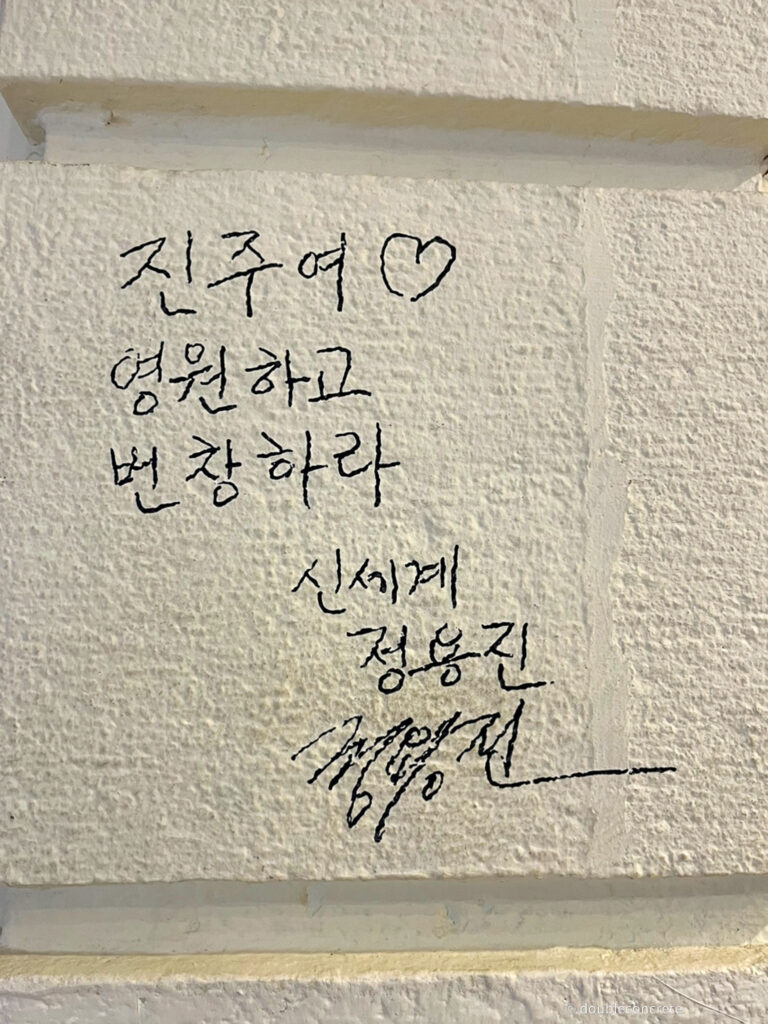 진주여♡
영원하고
번창하라
신세계
정용진
정용진
© doubleconcrete